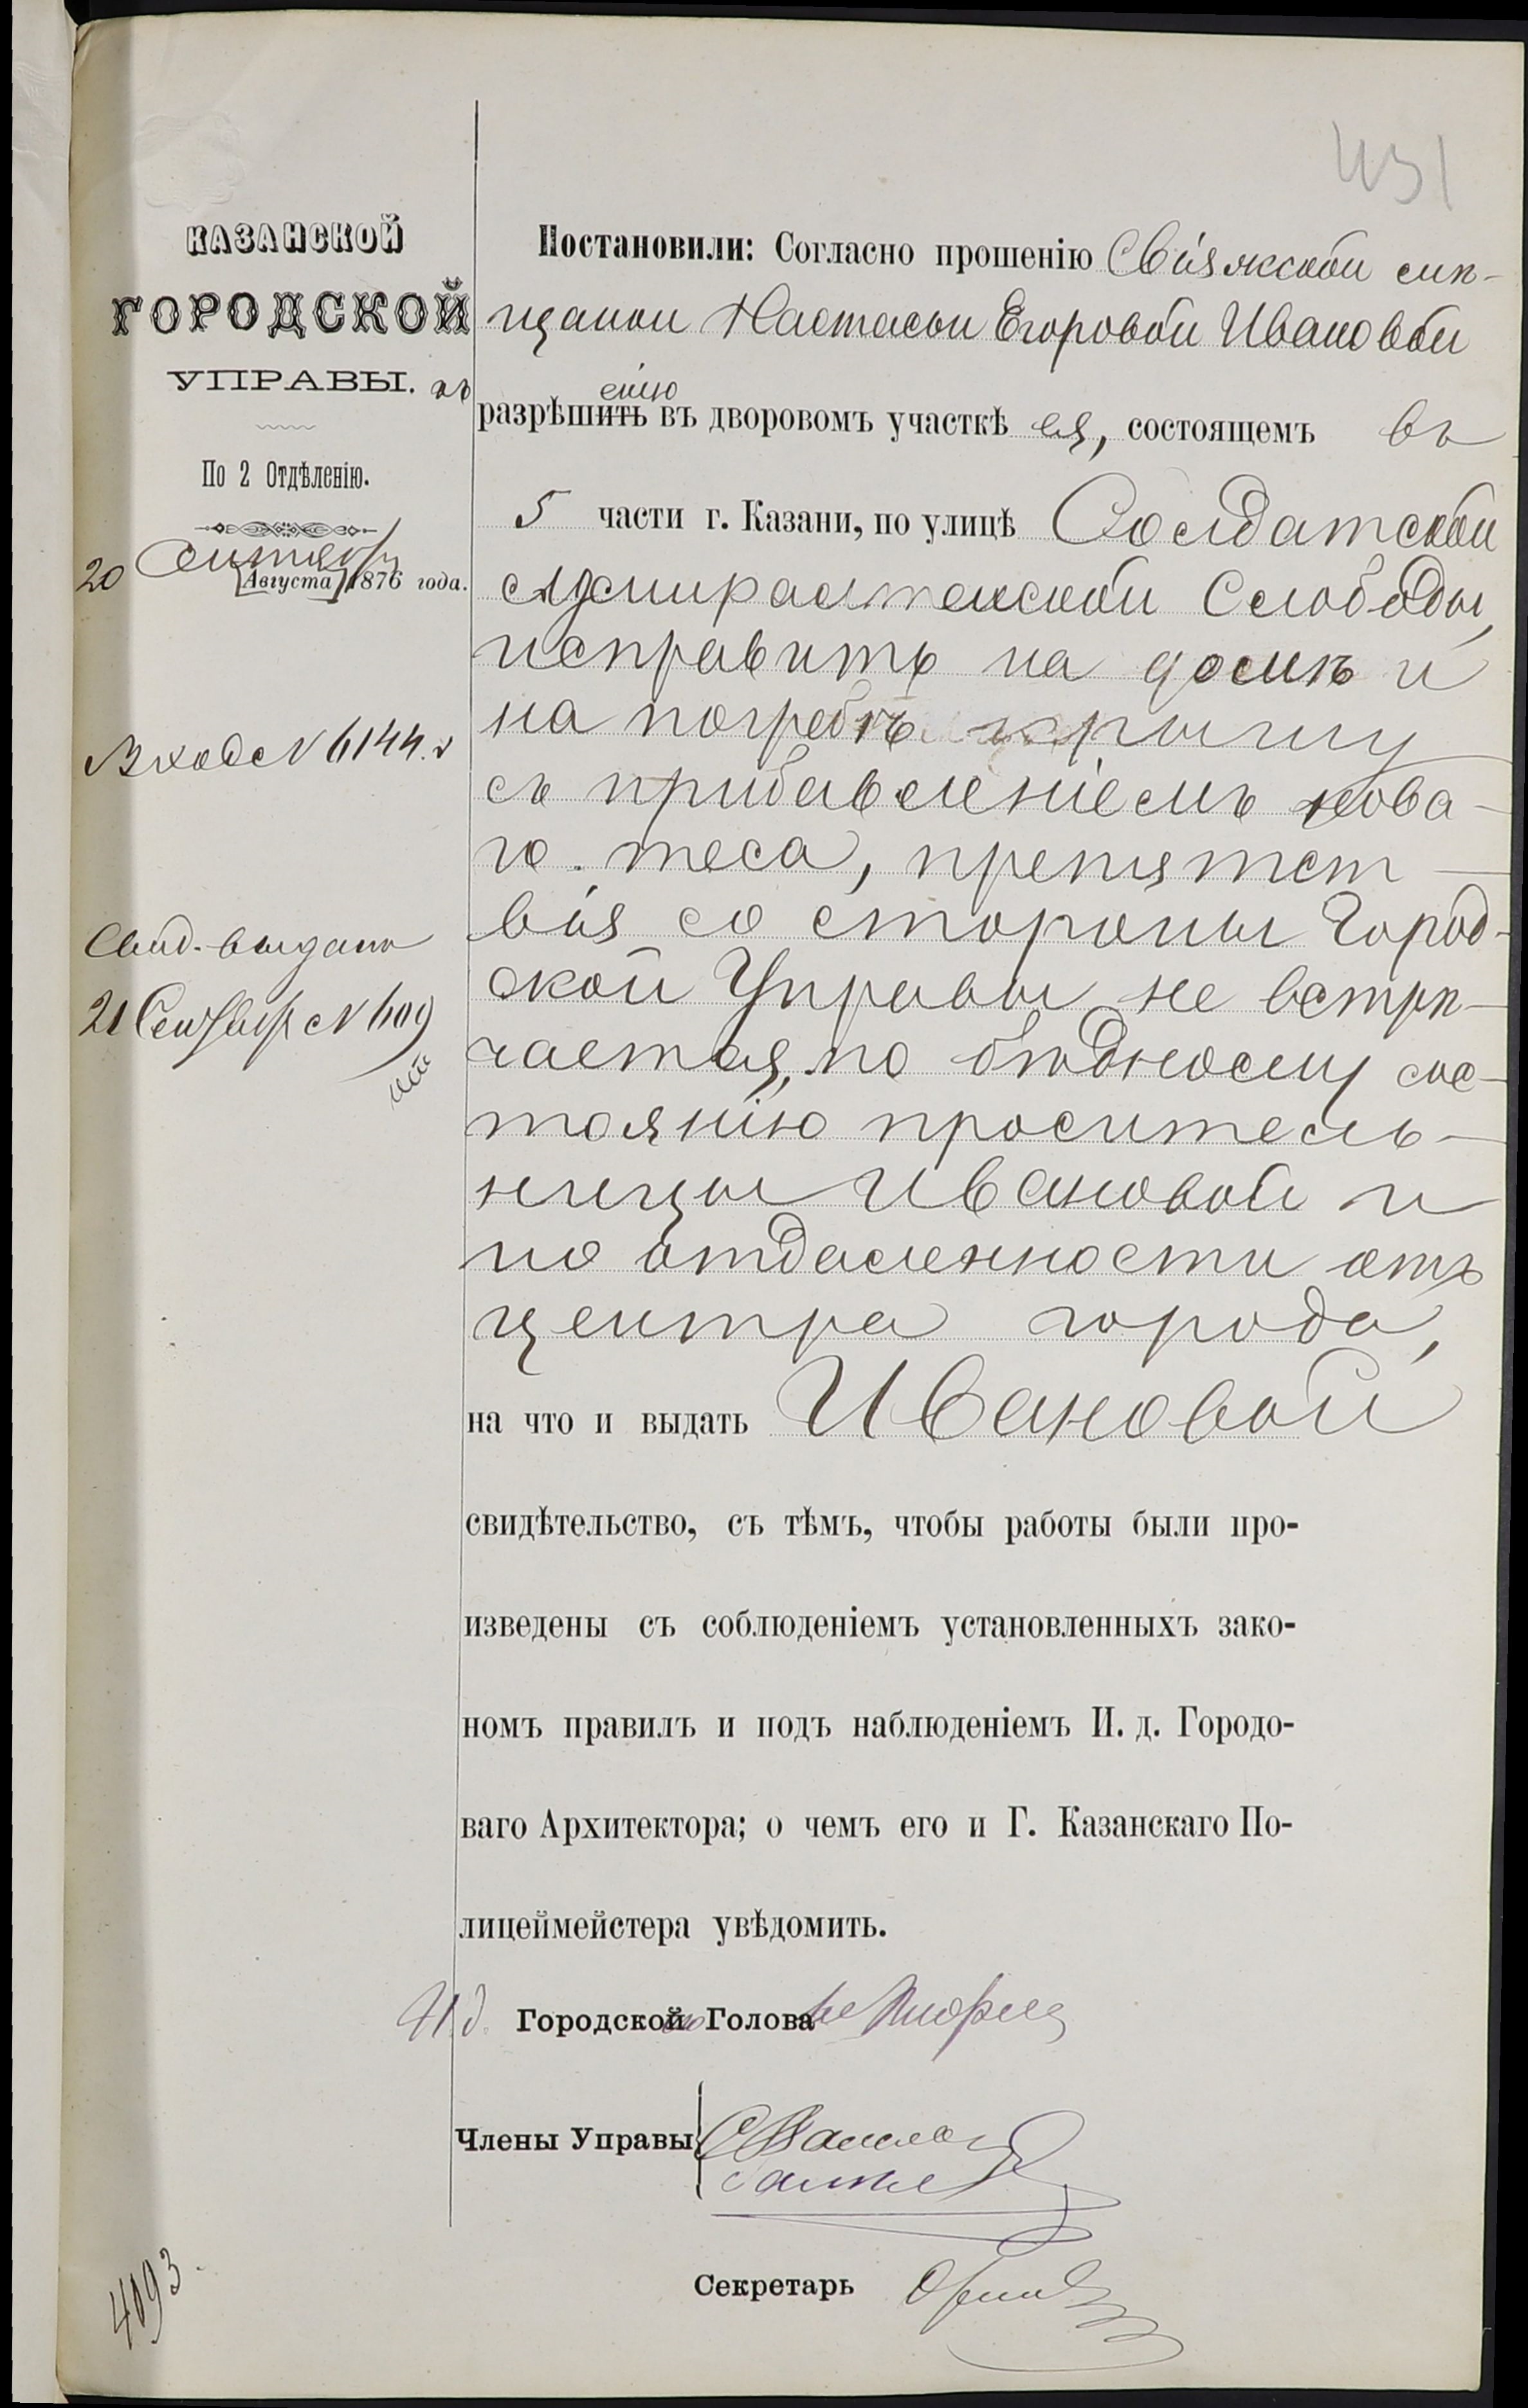 431
КАЗАНСКОЙ
ГОРОДСКОЙ
УПРАВЫ.
По 2 Отдѣленію.
20 Сентября
[Августа] 1876 года.
Входе № 6144.
Свид. выдано
21 Сентября № 609
4093.
Постановили: Согласно прошенію Свіяжской мѣ-
щанки Настасьи Егоровой Ивановой
къ
енію
разрѣшить въ дворовомъ участкѣ ея, состоящемъ въ
5 части г. Казани, по улицѣ Солдатской
Адмиралтейской Слободы,
исправить на домѣ и
на погребѣ крышу
съ прибавленіемъ нова-
го теса, препятст-
вія со стороны Город-
ской Управы не встрѣ-
чается, по бѣдному сос-
тоянію проситель-
ницы Ивановой и
по отдаленности отъ
центра города,
на что и выдать Ивановой
свидѣтельство, съ тѣмъ, чтобы работы были про-
изведены съ соблюденіемъ установленныхъ зако-
номъ правилъ и подъ наблюденіемъ И. д. Городо-
ваго Архитектора; о чемъ его и Г. Казанскаго По-
лицеймейстера увѣдомить.
И. д. Городской Голова
Члены Управы
Секретарь